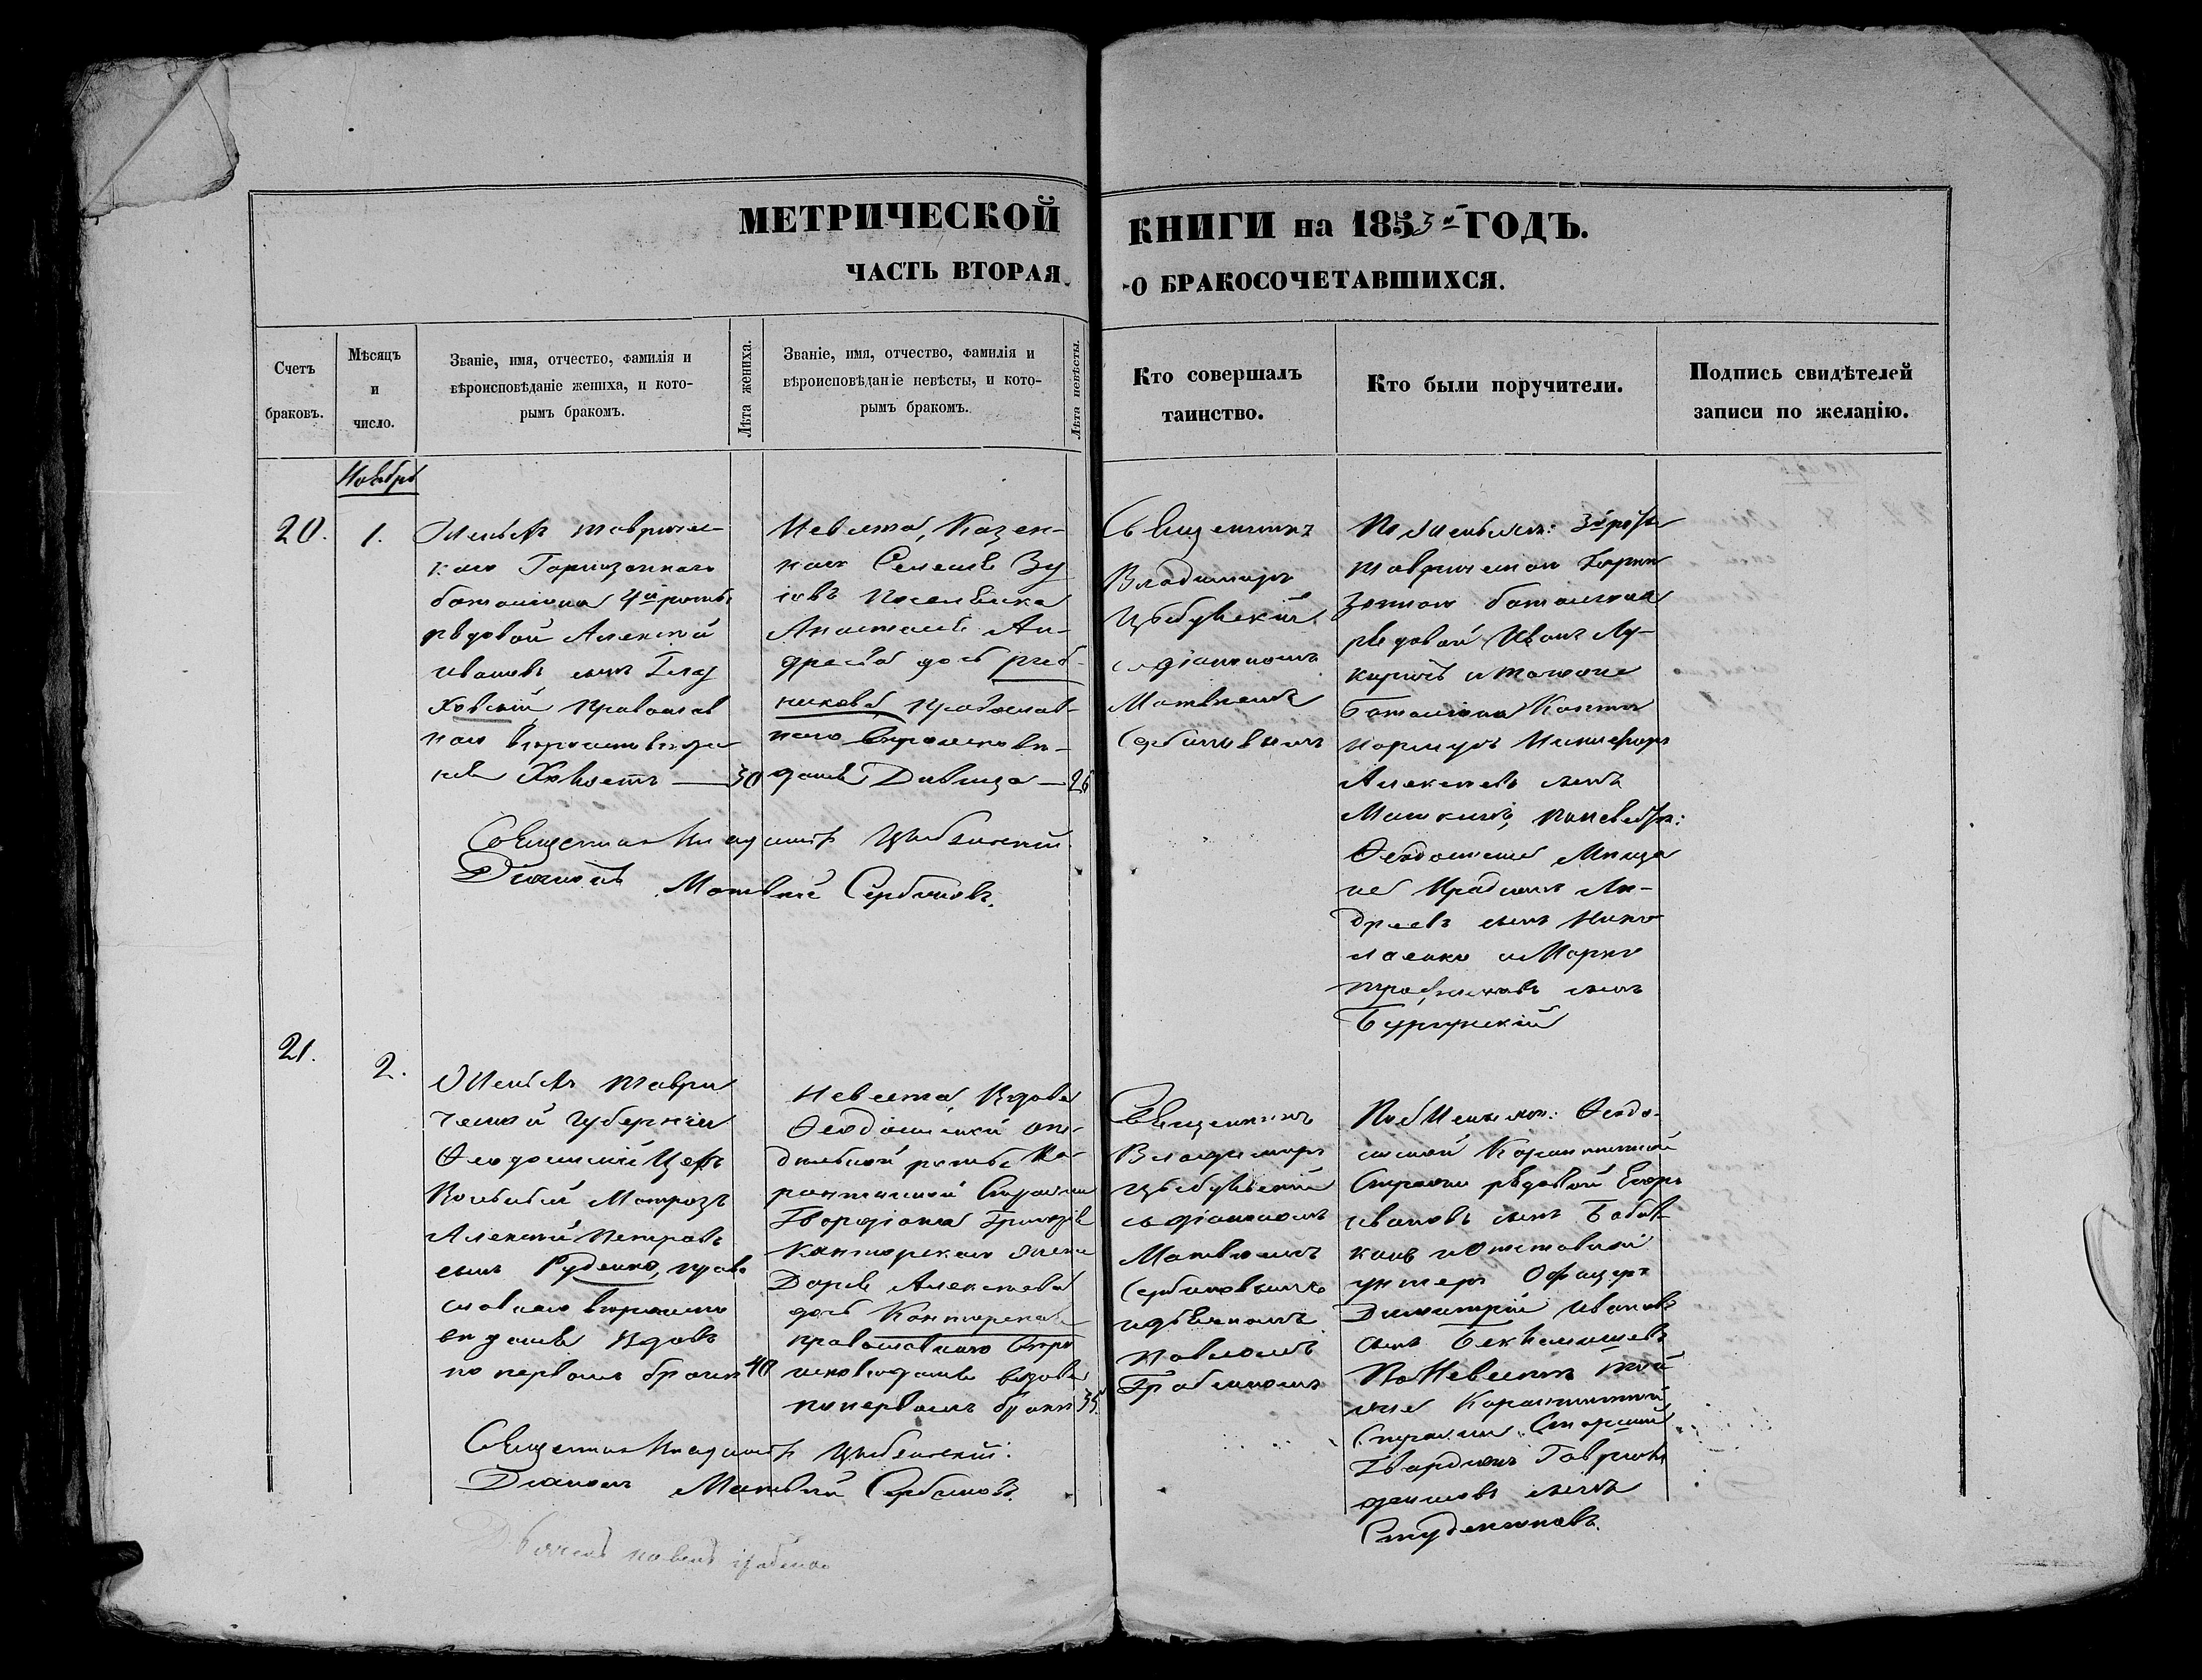 МЕТРИЧЕСКОЙ
КНИГИ на 1853й ГОДЪ.
ЧАСТЬ ВТОРАЯ
О БРАКОСОЧЕТАВШИХСЯ.
Счетъ
браковъ.
Мѣсяцъ
и
число.
Званіе, имя, отчество, фамилія и
вѣроисповѣданіе жениха, и кото-
рымъ бракомъ.
Лѣта жениха.
Званіе, имя, отчество, фамилія и
вѣроисповѣданіе невѣсты, и кото-
рымъ бракомъ.
Лѣта невѣсты.
Кто совершалъ
таинство.
Кто были поручители.
Подпись свидѣтелей
записи по желанію.
Ноябрь
20.
1.
Женихъ Тавричес-
каго Гарнизоннаго
баталіона 4й роты
рядовой Алексей
Ивановъ сынъ
Православ
наго вероисповеда
нія Холостъ
30
Невеста, Казен-
ная Селенія Зу
Поселянка
Анастасія Ан-
дреева дочь Рыб-
никова, Православ-
наго Вероисповѣ-
данія Девица
26
Священникъ
Владимиръ
Цыбульскій
съ діакономъ
Матвеемъ
Сербиновымъ
По Женихѣ: 3й роты
Таврическаго Гарни
зоннаго баталіона
рядовой Иванъ Лу-
и тогоже
Баталіона
Никифоръ
Алексеевъ сынъ
по невестѣ:
Феодосійскіе Меща
не Андреевъ сынъ Нико
лаенко и Марко
Трофимовъ сынъ
Священникъ Владиміръ Цыбульскій
Діаконъ Матвей Сербиновъ.
21.
2.
Женихъ Таври
ческой Губерніи
Феодосійскій
Вольный Матрозъ
Алексей Петровъ
сынъ Руденко, право
славнаго вероиспо
веданія Вдовъ
по первомъ браке
40
Невеста, Вдова
Феодосійской
роты Ка
рантинной Стражи
Гвардіона Григорія
Канторскаго жена
Дарія Алексеева
дочь Канторская
православнаго Веро
исповеданія вдова
по первомъ браке
35.
Священникъ
Владимиръ
Цыбульскій
съ діакономъ
Матвеемъ
Сербиновымъ
и дьячкомъ
Павломъ
Грабенкомъ
По Женихѣ: Феодо-
сійской Карантинной
Стражи рядовой Егоръ
Ивановъ сынъ
и Отставной
унтеръ Офицеръ
Димитрій Ивановъ
сынъ
По Невестѣ той
же Карантинной
Стражи Старшій
Гвардіонъ Гаврило
сынъ
Студениковъ.
Священникъ Владиміръ Цыбульскій:
Діаконъ Матвей Сербиновъ.
Дьячокъ Павелъ Грабенко